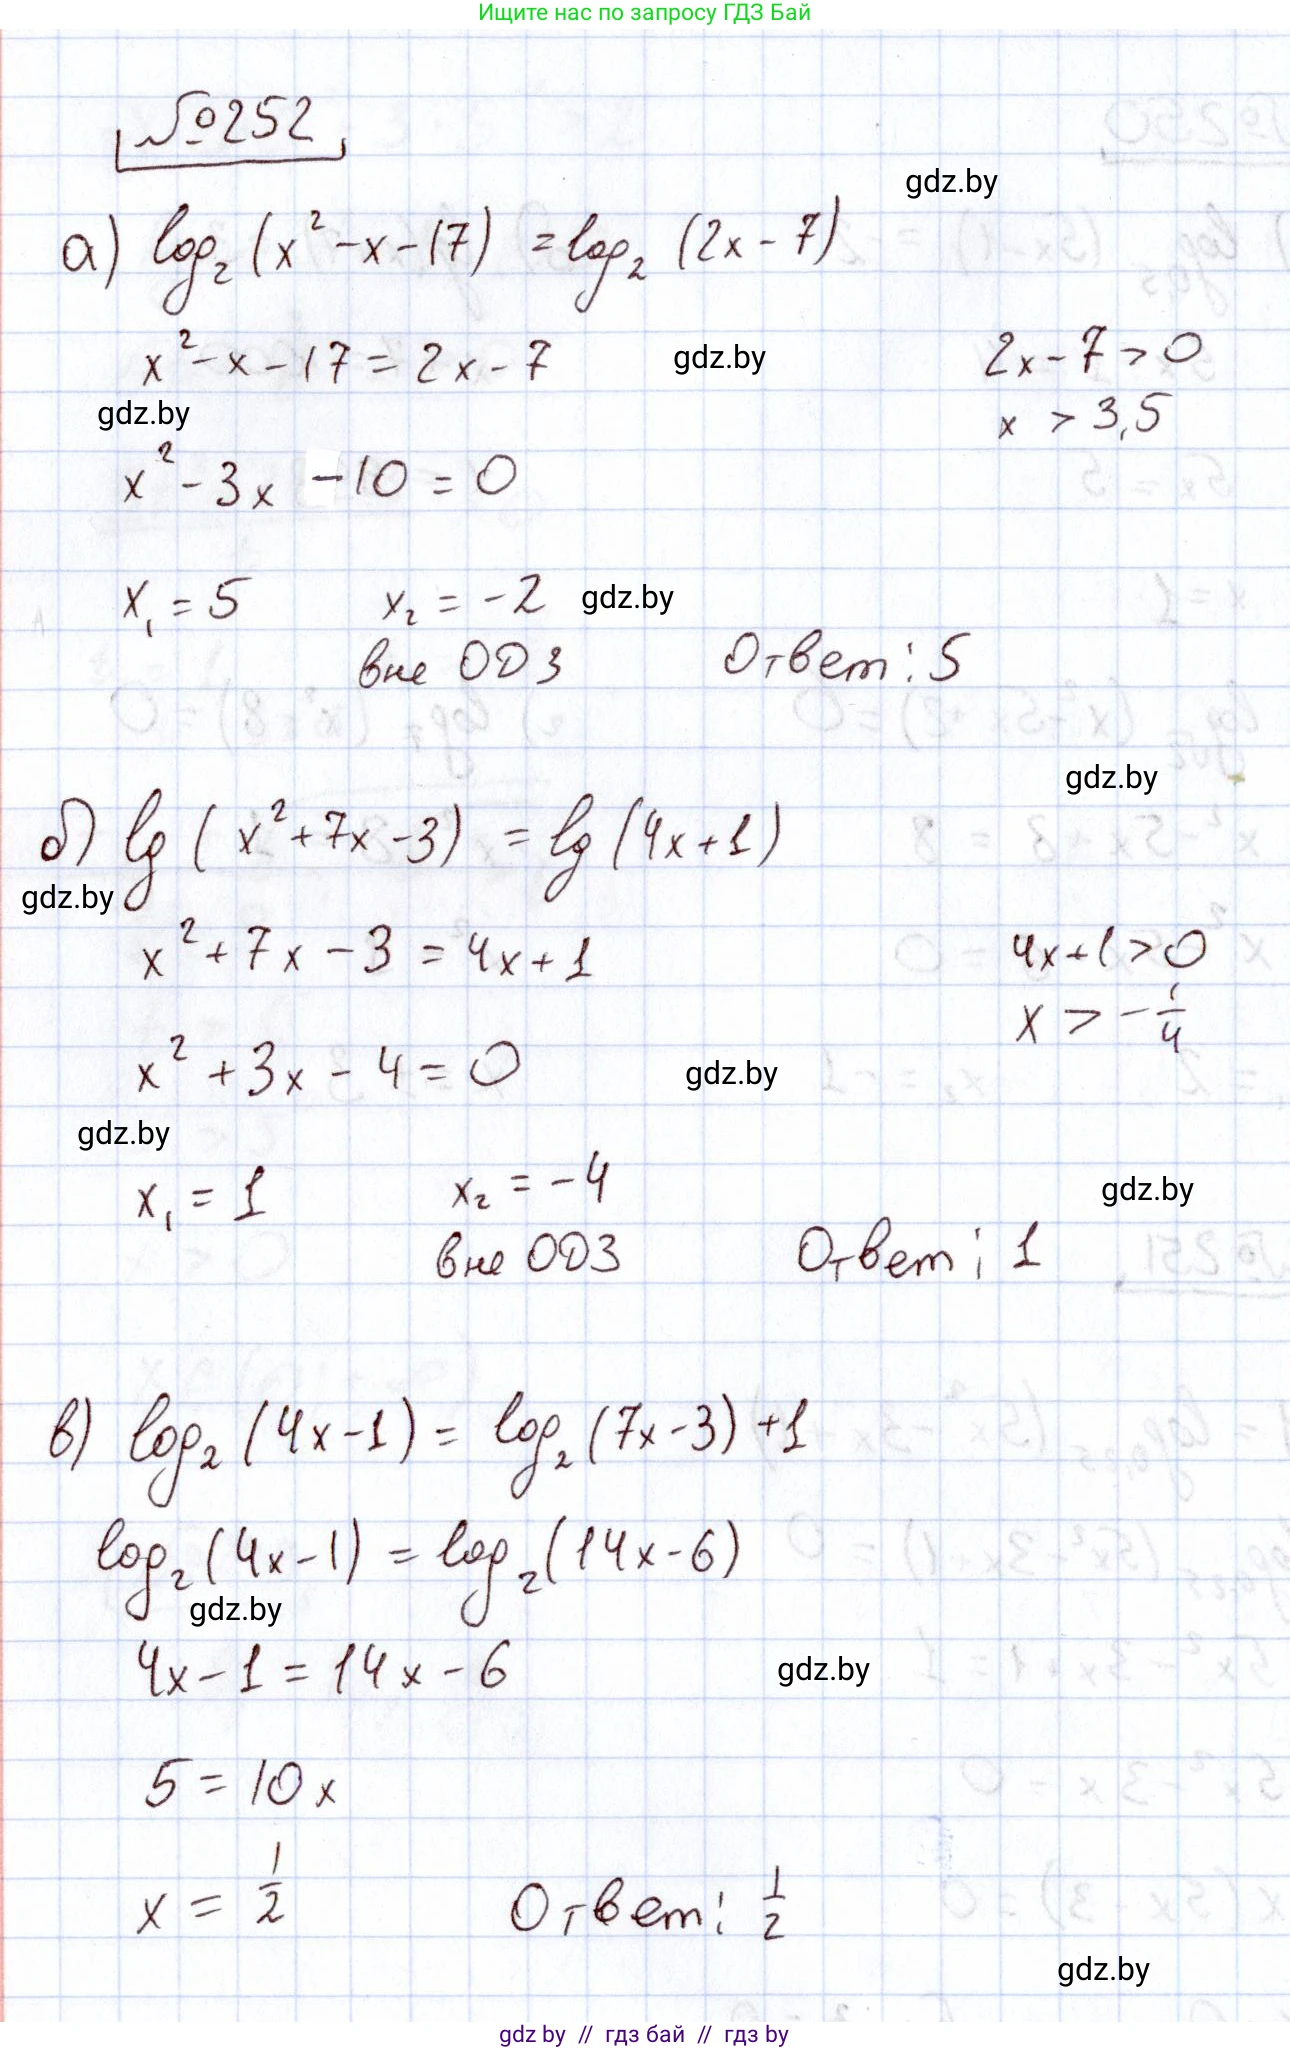 Ищите нас по запросу ГДЗ Бай
№252
gdz.by
а) log₂ (x² - x - 17) = log₂ (2x - 7)
x² - x - 17 = 2x - 7
gdz.by
2x - 7 > 0
gdz.by
x > 3,5
x² - 3x - 10 = 0
x₁ = 5
x₂ = -2
gdz.by
вне ОДЗ
Ответ: 5
gdz.by
б) lg (x² + 7x - 3) = lg (4x + 1)
gdz.by
x² + 7x - 3 = 4x + 1
4x + 1 > 0
x > -1/4
x² + 3x - 4 = 0
gdz.by
gdz.by
x₁ = 1
x₂ = -4
gdz.by
вне ОДЗ
Ответ: 1
в) log₂ (4x - 1) = log₂ (7x - 3) + 1
log₂ (4x - 1) = log₂ (14x - 6)
gdz.by
4x - 1 = 14x - 6
gdz.by
5 = 10x
x = 1/2
Ответ: 1/2
gdz.by
gdz by // гдз бай // гдз by